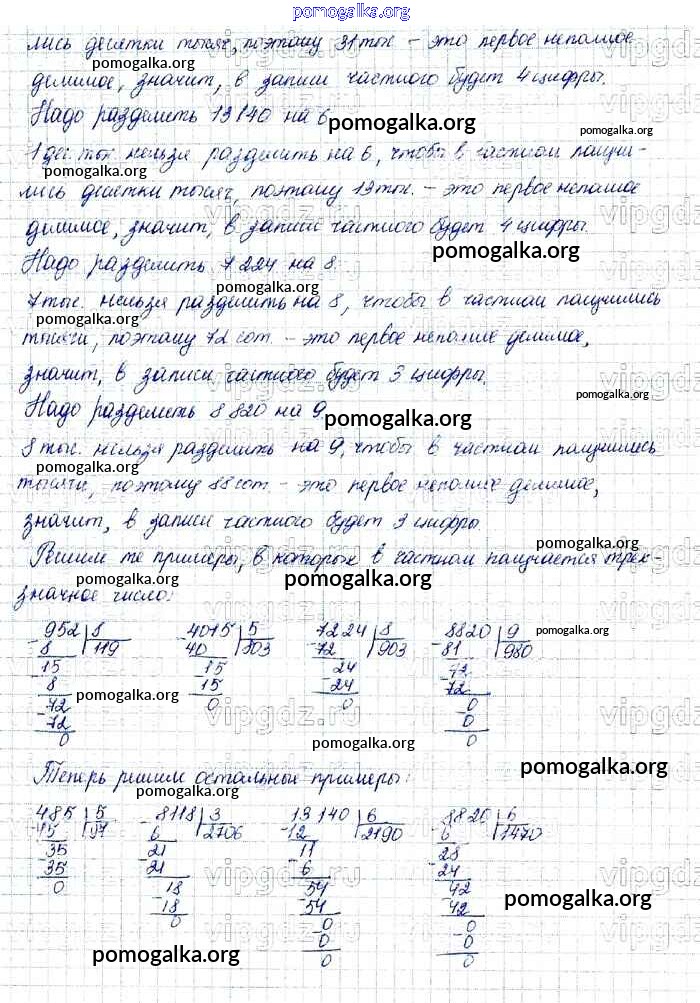 pomogalka.org
лись десятки тысяч, поэтому 31 тыс. - это первое неполное
делимое, значит, в записи частного будет 4 цифры.
Надо разделить 13140 на 6
pomogalka.org
pomogalka.org
1 дес. тыс. нельзя разделить на 6, чтобы в частном получи-
лись десятки тысяч, поэтому 13 тыс. - это первое неполное
делимое, значит, в записи частного будет 4 цифры.
pomogalka.org
Надо разделить 7 224 на 8.
pomogalka.org
7 тыс. нельзя разделить на 8, чтобы в частном получились
pomogalka.org
тысячи, поэтому 72 сот. - это первое неполное делимое,
значит, в записи частного будет 3 цифры.
pomogalka.org
Надо разделить 8 820 на 9
pomogalka.org
8 тыс. нельзя разделить на 9, чтобы в частном получились
pomogalka.org
тысячи, поэтому 88 сот. - это первое неполное делимое,
значит, в записи частного будет 3 цифры.
pomogalka.org
Решим те примеры, в которых в частном получается трёх-
pomogalka.org
pomogalka.org
значное число:
952 8 4015 5 7224 8 8820 9
pomogalka.org
8 119 40 803 72 903 81 980
15 15 24 72
8 15 24 72
72 0 0 0
pomogalka.org
72 0
0 0
pomogalka.org
Теперь решим остальные примеры:
pomogalka.org
pomogalka.org
485 5 8118 3 13140 6 8820 6
45 97 6 2706 12 2190 6 1470
35 21 11 28
35 21 6 24
0 18 54 42
18 54 42
pomogalka.org
0 0 0
0 0
0 0
pomogalka.org